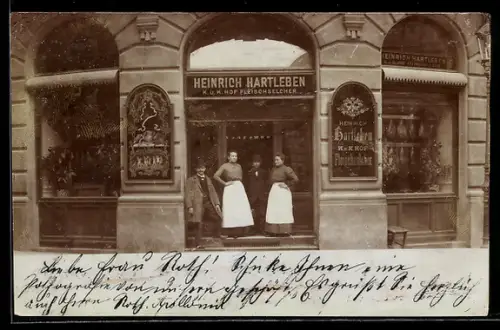 HEINRICH HARTLEBEN
K. U. K. HOF FLEISCHSELCHER
HEINRICH HARTLEBEN
HEINRICH
Hartleben
K. u. K. HOF
Fleischselcher
Liebe Frau Roth! Schicke Ihnen eine
Photografie von unsern Geschäft. Es grüßt Sie herzlich
auch Ihren